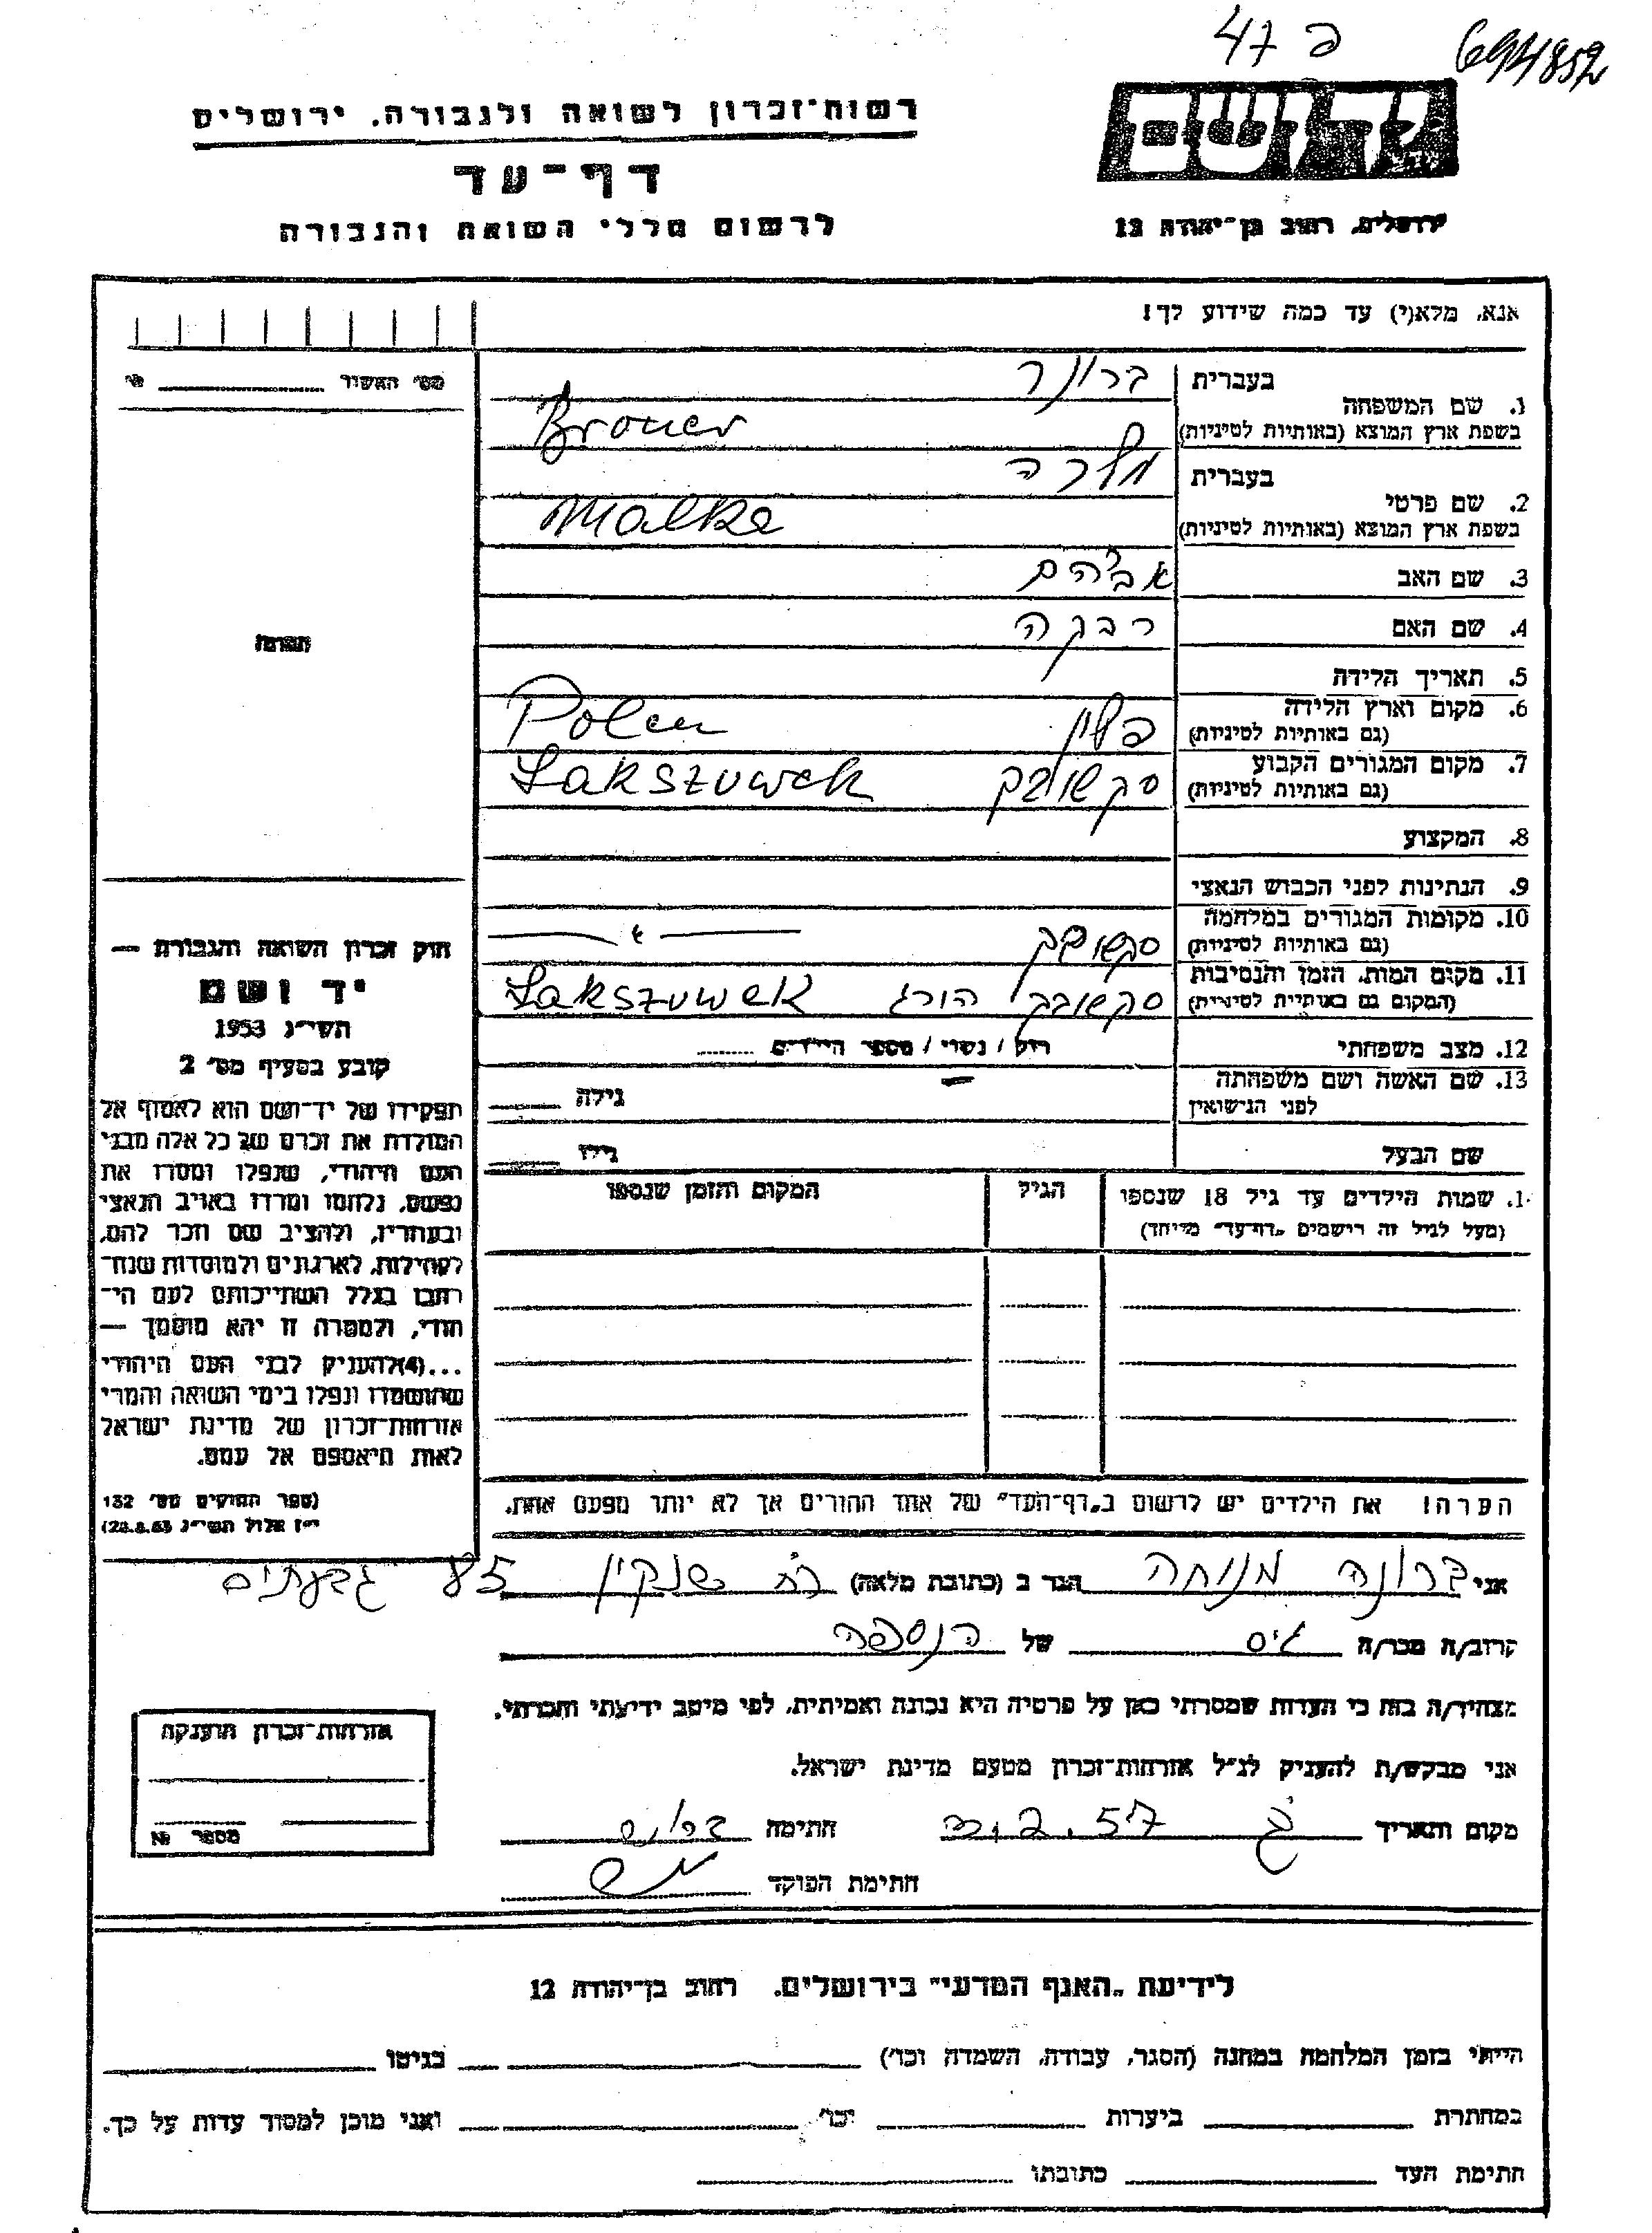 47 פ
694852
רשות־זכרון לשואה ולגבורה, ירושלים
יד ושם
דף־עד
לרשום חללי השואה והגבורה
ירושלים, רחוב בן־יהודה 12
אנא, מלא(י) עד כמה שידוע לך!
מס׳ האשור
בעברית ברונר
1. שם המשפחה
בשפת ארץ המוצא (באותיות לטיניות) Broner
בעברית מלכה
2. שם פרטי
בשפת ארץ המוצא (באותיות לטיניות) Malka
3. שם האב אברהם
4. שם האם רבקה
תמונה
5. תאריך הלידה
6. מקום וארץ הלידה
(גם באותיות לטיניות) פולין Polen
7. מקום המגורים הקבוע
(גם באותיות לטיניות) סקשובק Sakszuwek
8. המקצוע
9. הנתינות לפני הכבוש הנאצי
10. מקומות המגורים במלחמה
(גם באותיות לטיניות) סקשובק
11. מקום המות, הזמן והנסיבות
(המקום גם באותיות לטיניות) סקשובק הורג Sakszuwek
12. מצב משפחתי רוק / נשוי / מספר הילדים
13. שם האשה ושם משפחתה
לפני הנישואין גילה
שם הבעל גילו
1. שמות הילדים עד גיל 18 שנספו הגיל המקום והזמן שנספו
(מעל לגיל זה רישמים „דף־עד״ מיוחד)
חוק זכרון השואה והגבורה —
יד ושם
תשי״ג 1953
קובע בסעיף מס׳ 2
תפקידו של יד־ושם הוא לאסוף אל
המולדת את זכרם של כל אלה מבני
העם היהודי, שנפלו ומסרו את
נפשם, נלחמו ומרדו באויב הנאצי
ובעוזריו, ולהציב שם וזכר להם,
לקהילות, לארגונים ולמוסדות שנח־
רבו בגלל השתייכותם לעם הי־
הודי, ולמטרה זו יהא מוסמך —
...(4)להעניק לבני העם היהודי
שהושמדו ונפלו בימי השואה והמרי
אזרחות־זכרון של מדינת ישראל
לאות היאספם אל עמם.
(ספר החוקים מס׳ 132
י״ז אלול תשי״ג 28.8.53)
הערה! את הילדים יש לרשום ב„דף־העד״ של אחד ההורים אך לא יותר מפעם אחת.
אני ברונה מנוחה הגר ב (כתובת מלאה) רח שנקין 58 גבעתים
קרוב/ה מכר/ה גיס של הנספה
מצהיר/ה בזה כי העדות שמסרתי כאן על פרטיה היא נכונה ואמיתית, לפי מיטב ידיעתי והכרתי.
אני מבקש/ת להעניק לנ״ל אזרחות־זכרון מטעם מדינת ישראל.
מקום ותאריך חתימה
חתימת הפוקד
אזרחות־זכרון הוענקה
מספר №
לידיעת „האגף המדעי״ בירושלים, רחוב בן־יהודה 12
הייתי בזמן המלחמה במחנה (הסגר, עבודה, השמדה וכו׳) בגיטו
במחתרת ביערות וכו׳ ואני מוכן למסור עדות על כך.
חתימת העד כתובתו